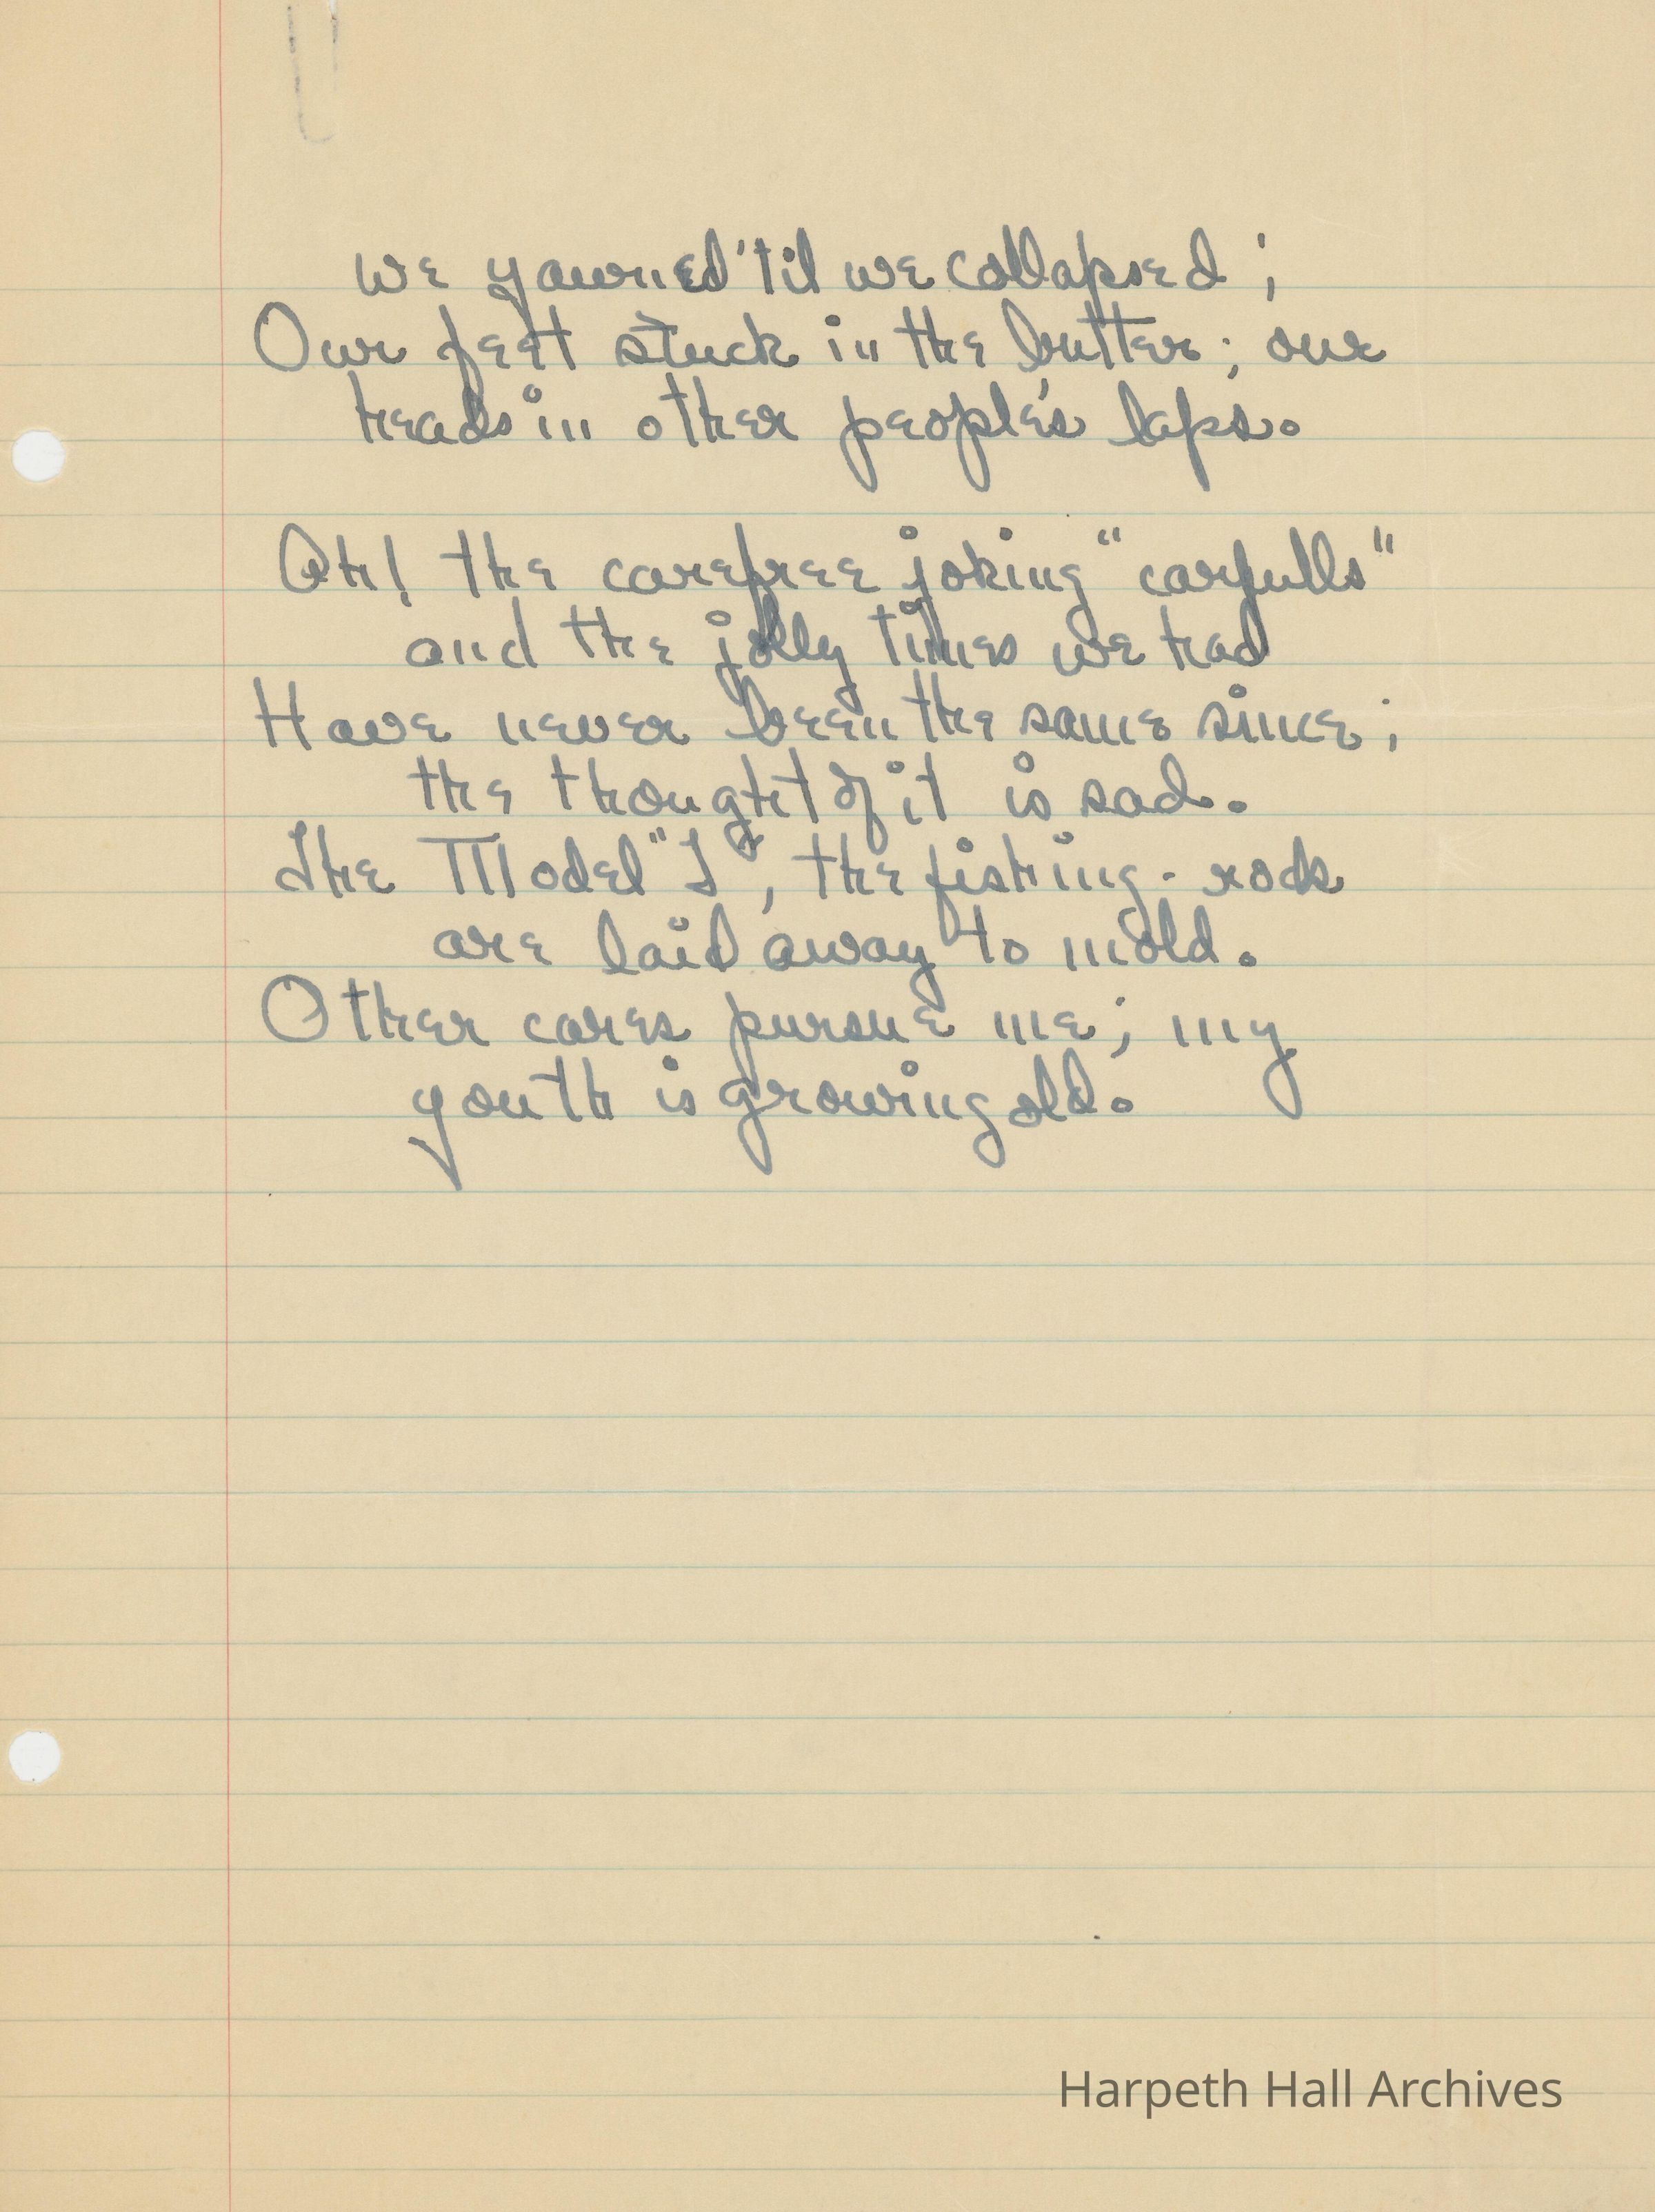 we yawned 'til we collapsed;
Our feet stuck in the butter; our
heads in other people's laps.
Oh! the carefree joking "carfulls"
and the jolly times we had
Have never been the same since;
the thought of it is sad.
The Model "T", the fishing-rods
are laid away to mold.
Other cares pursue me; my
youth is growing old.
Harpeth Hall Archives